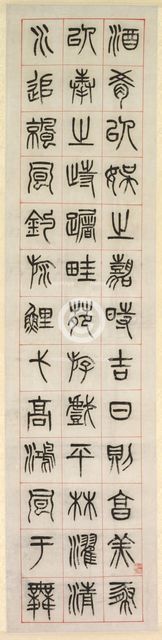 酒肴以娛之嘉時吉日則亯羔豚
以奉之畦苑游戲平林濯清
水追涼風釣游鯉弋高鴻風于舞